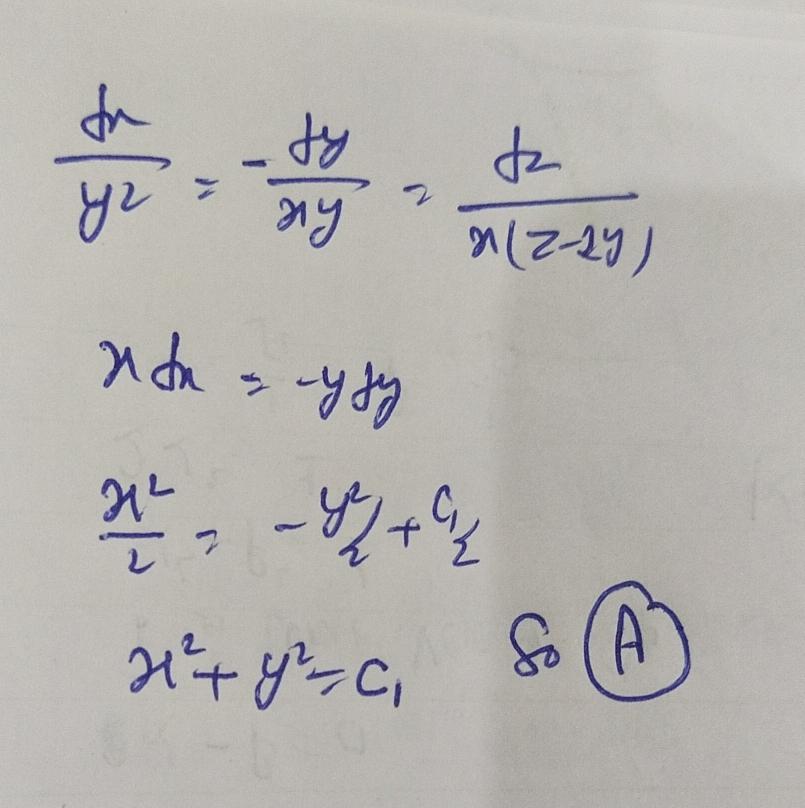 dx/y² = -dy/xy = dz/x(z-2y)
x dx = -y dy
x²/2 = -y²/2 + C₁/2
x² + y² = C₁ So A